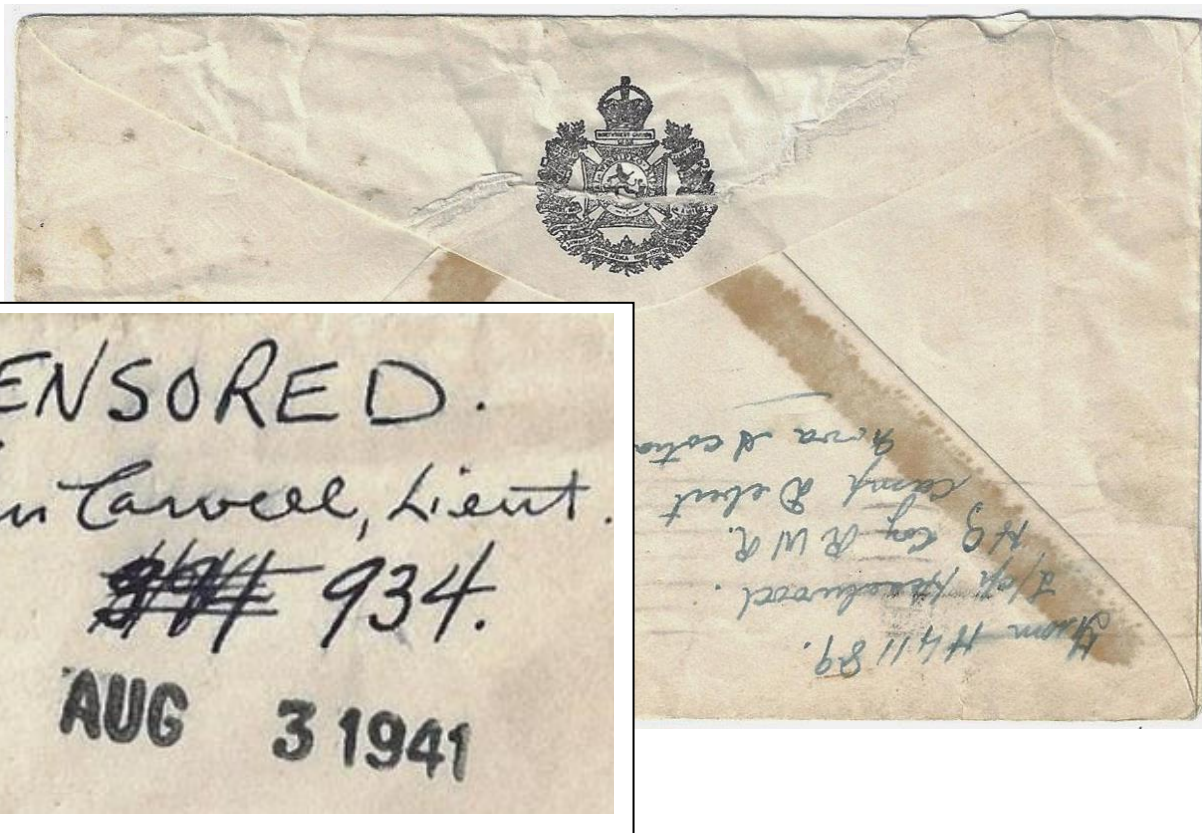 ENSORED.
Carvell, Lieut.
934.
AUG 3 1941
From H41189.
L/Cpl Hazelwood.
HQ Coy R W R.
Camp Debert
Nova Scotia